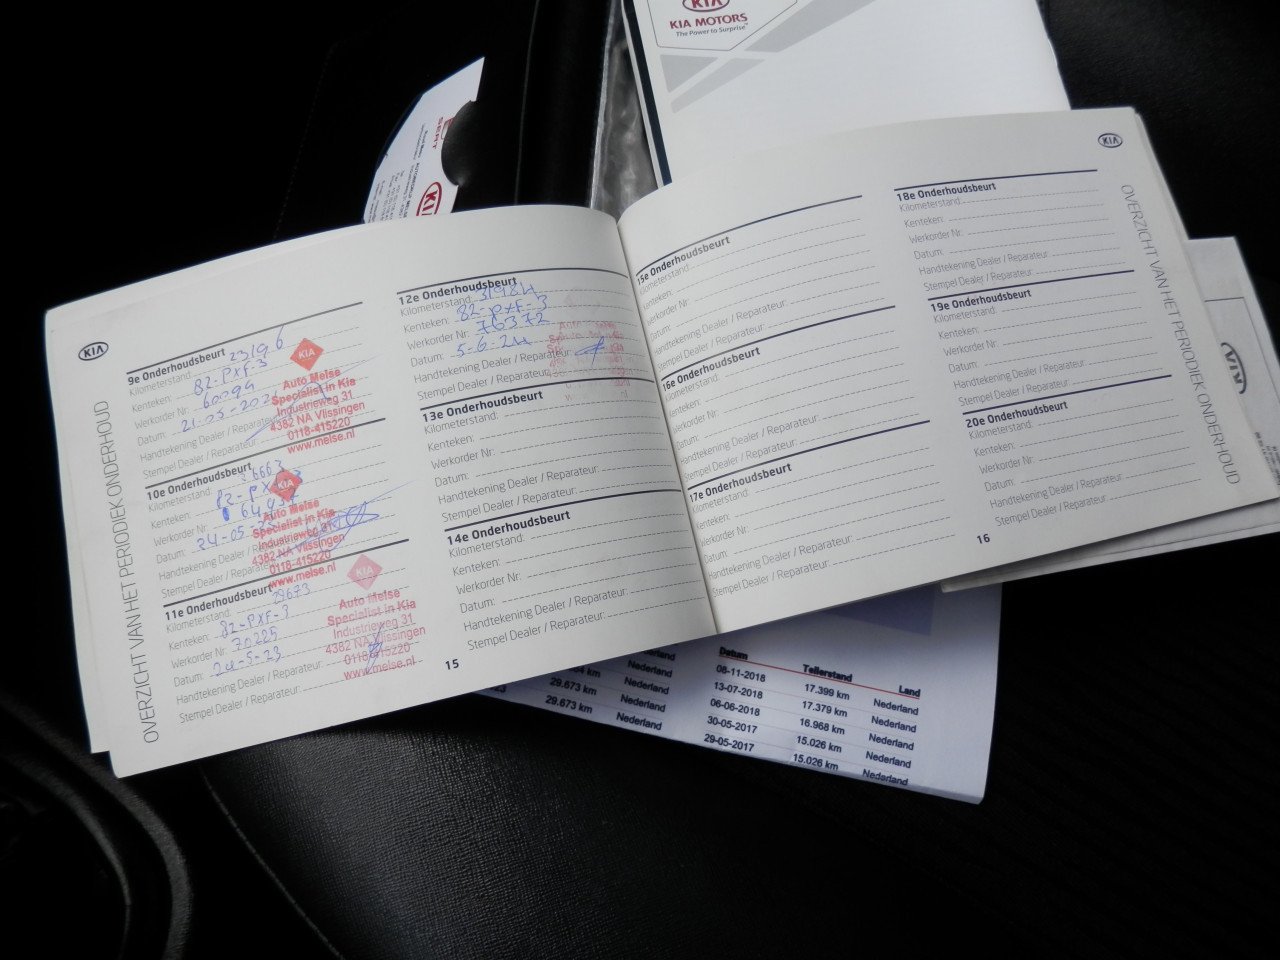 KIA
KIA MOTORS
The Power to Surprise™
SEAT
KIA
KIA
OVERZICHT VAN HET PERIODIEK ONDERHOUD
9e Onderhoudsbeurt
Kilometerstand: 23196
Kenteken: 82-PXF-3
Werkorder Nr: 60094
Datum: 21-05-202
Handtekening Dealer / Reparateur:
Stempel Dealer / Reparateur:
KIA
Auto Melse
Specialist in Kia
Industrieweg 31
4382 NA Vlissingen
0118-415220
www.melse.nl
10e Onderhoudsbeurt
Kilometerstand: 26663
Kenteken: 82-PX
Werkorder Nr:
Datum: 24-05-
Handtekening Dealer / Reparateur:
Stempel Dealer / Reparateur:
KIA
Auto Melse
Specialist in Kia
Industrieweg 31
4382 NA Vlissingen
0118-415220
www.melse.nl
11e Onderhoudsbeurt
Kilometerstand: 29673
Kenteken: 82-PXF-3
Werkorder Nr: 70225
Datum: 24-5-23
Handtekening Dealer / Reparateur:
Stempel Dealer / Reparateur:
KIA
Auto Melse
Specialist in Kia
Industrieweg 31
4382 NA Vlissingen
0118-415220
www.melse.nl
12e Onderhoudsbeurt
Kilometerstand: 31984
Kenteken: 82-PXF-3
Werkorder Nr: 76372
Datum: 5-6-24
Handtekening Dealer / Reparateur:
Stempel Dealer / Reparateur:
13e Onderhoudsbeurt
Kilometerstand:
Kenteken:
Werkorder Nr:
Datum:
Handtekening Dealer / Reparateur:
Stempel Dealer / Reparateur:
14e Onderhoudsbeurt
Kilometerstand:
Kenteken:
Werkorder Nr:
Datum:
Handtekening Dealer / Reparateur:
Stempel Dealer / Reparateur:
15
15e Onderhoudsbeurt
Kilometerstand:
Kenteken:
Werkorder Nr:
Datum:
Handtekening Dealer / Reparateur:
Stempel Dealer / Reparateur:
16e Onderhoudsbeurt
Kilometerstand:
Kenteken:
Werkorder Nr:
Datum:
Handtekening Dealer / Reparateur:
Stempel Dealer / Reparateur:
17e Onderhoudsbeurt
Kilometerstand:
Kenteken:
Werkorder Nr:
Datum:
Handtekening Dealer / Reparateur:
Stempel Dealer / Reparateur:
18e Onderhoudsbeurt
Kilometerstand:
Kenteken:
Werkorder Nr:
Datum:
Handtekening Dealer / Reparateur:
Stempel Dealer / Reparateur:
19e Onderhoudsbeurt
Kilometerstand:
Kenteken:
Werkorder Nr:
Datum:
Handtekening Dealer / Reparateur:
Stempel Dealer / Reparateur:
20e Onderhoudsbeurt
Kilometerstand:
Kenteken:
Werkorder Nr:
Datum:
Handtekening Dealer / Reparateur:
Stempel Dealer / Reparateur:
16
KIA
OVERZICHT VAN HET PERIODIEK ONDERHOUD
KIA
Nederland
Nederland
29.673 km Nederland
29.673 km Nederland
Datum Tellerstand Land
08-11-2018 17.399 km Nederland
13-07-2018 17.379 km Nederland
06-06-2018 16.968 km Nederland
30-05-2017 15.026 km Nederland
29-05-2017 15.026 km Nederland